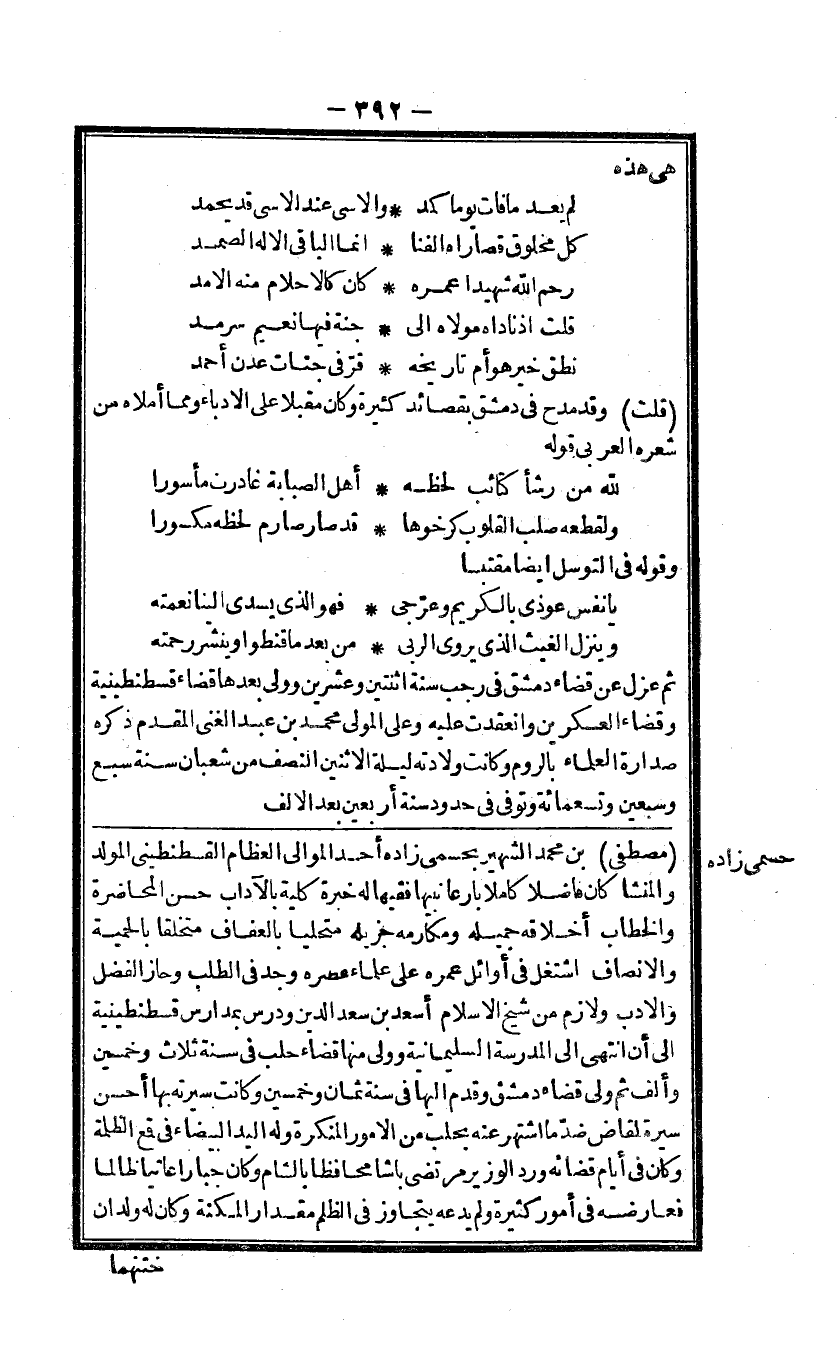 — ٣٩٢ —
هى هذه
لم يعد مافات يوما كمد * والاسى عند الاسى قد يحمد
كل مخلوق قصاراه الفنا * انما الباقى الاله الصمد
رحم الله شهيدا عمره * كان كالاحلام منه الامد
قلت اذ ناداه مولاه الى * جنة فيها نعيم سرمد
نطق خير هو أم تاريخه * قر فى جنات عدن أحمد
(قلت) وقد مدح فى دمشق بقصائد كثيرة وكان مقبلا على الادباء ومما أملاه من
شعره العربى قوله
لله من رشأ كتائب لحظه * أهل الصبابة غادرت مأسورا
ولقطعه صلب القلوب كرخوها * قد صار صارم لحظه مكسورا
وقوله فى التوسل ايضا مقتبسا
يا نفس عوذى بالكريم وعرّجى * فهو الذى يسدى الينا نعمته
وينزل الغيث الذى يروى الربى * من بعد ما قنطوا وينشر رحمته
ثم عزل عن قضاء دمشق فى رجب سنة اثنتين وعشرين وولى بعدها قضاء قسطنطينية
وقضاء العسكرين وانعقدت عليه وعلى المولى محمد بن عبد الغنى المقدم ذكره
صدارة العلماء بالروم وكانت ولادته ليلة الاثنين النصف من شعبان سنة سبع
وسبعين وتسعمائة وتوفى فى حدود سنة أربعين بعد الالف
حسمى زاده
(مصطفى) بن محمد الشهير بحسمى زاده أحد الموالى العظام القسطنطينى المولد
والمنشا كان فاضلا كاملا بارعا نبيها فقيها له خبرة كلية بالآداب حسن المحاضرة
والخطاب أخلاقه جميله ومكارمه جزيله متحليا بالعفاف متخلقا بالحمية
والانصاف اشتغل فى أوائل عمره على علماء عصره وجد فى الطلب وحاز الفضل
والادب ولازم من شيخ الاسلام أسعد بن سعد الدين ودرس بمدارس قسطنطينية
الى أن انتهى الى المدرسة السليمانية وولى منها قضاء حلب فى سنة ثلاث وخمسين
وألف ثم ولى قضاء دمشق وقدم اليها فى سنة ثمان وخمسين وكانت سيرته بها أحسن
سيرة لقاض ضدّ ما اشتهر عنه بحلب من الامور المنكرة وله اليد البيضاء فى قمع الظلمة
وكان فى أيام قضائه ورد الوزير مرتضى باشا محافظا بالشام وكان جبارا عاتيا ظالما
فعارضه فى أمور كثيرة ولم يدعه يتجاوز فى الظلم مقدار المكنة وكان له ولدان
ختنهما